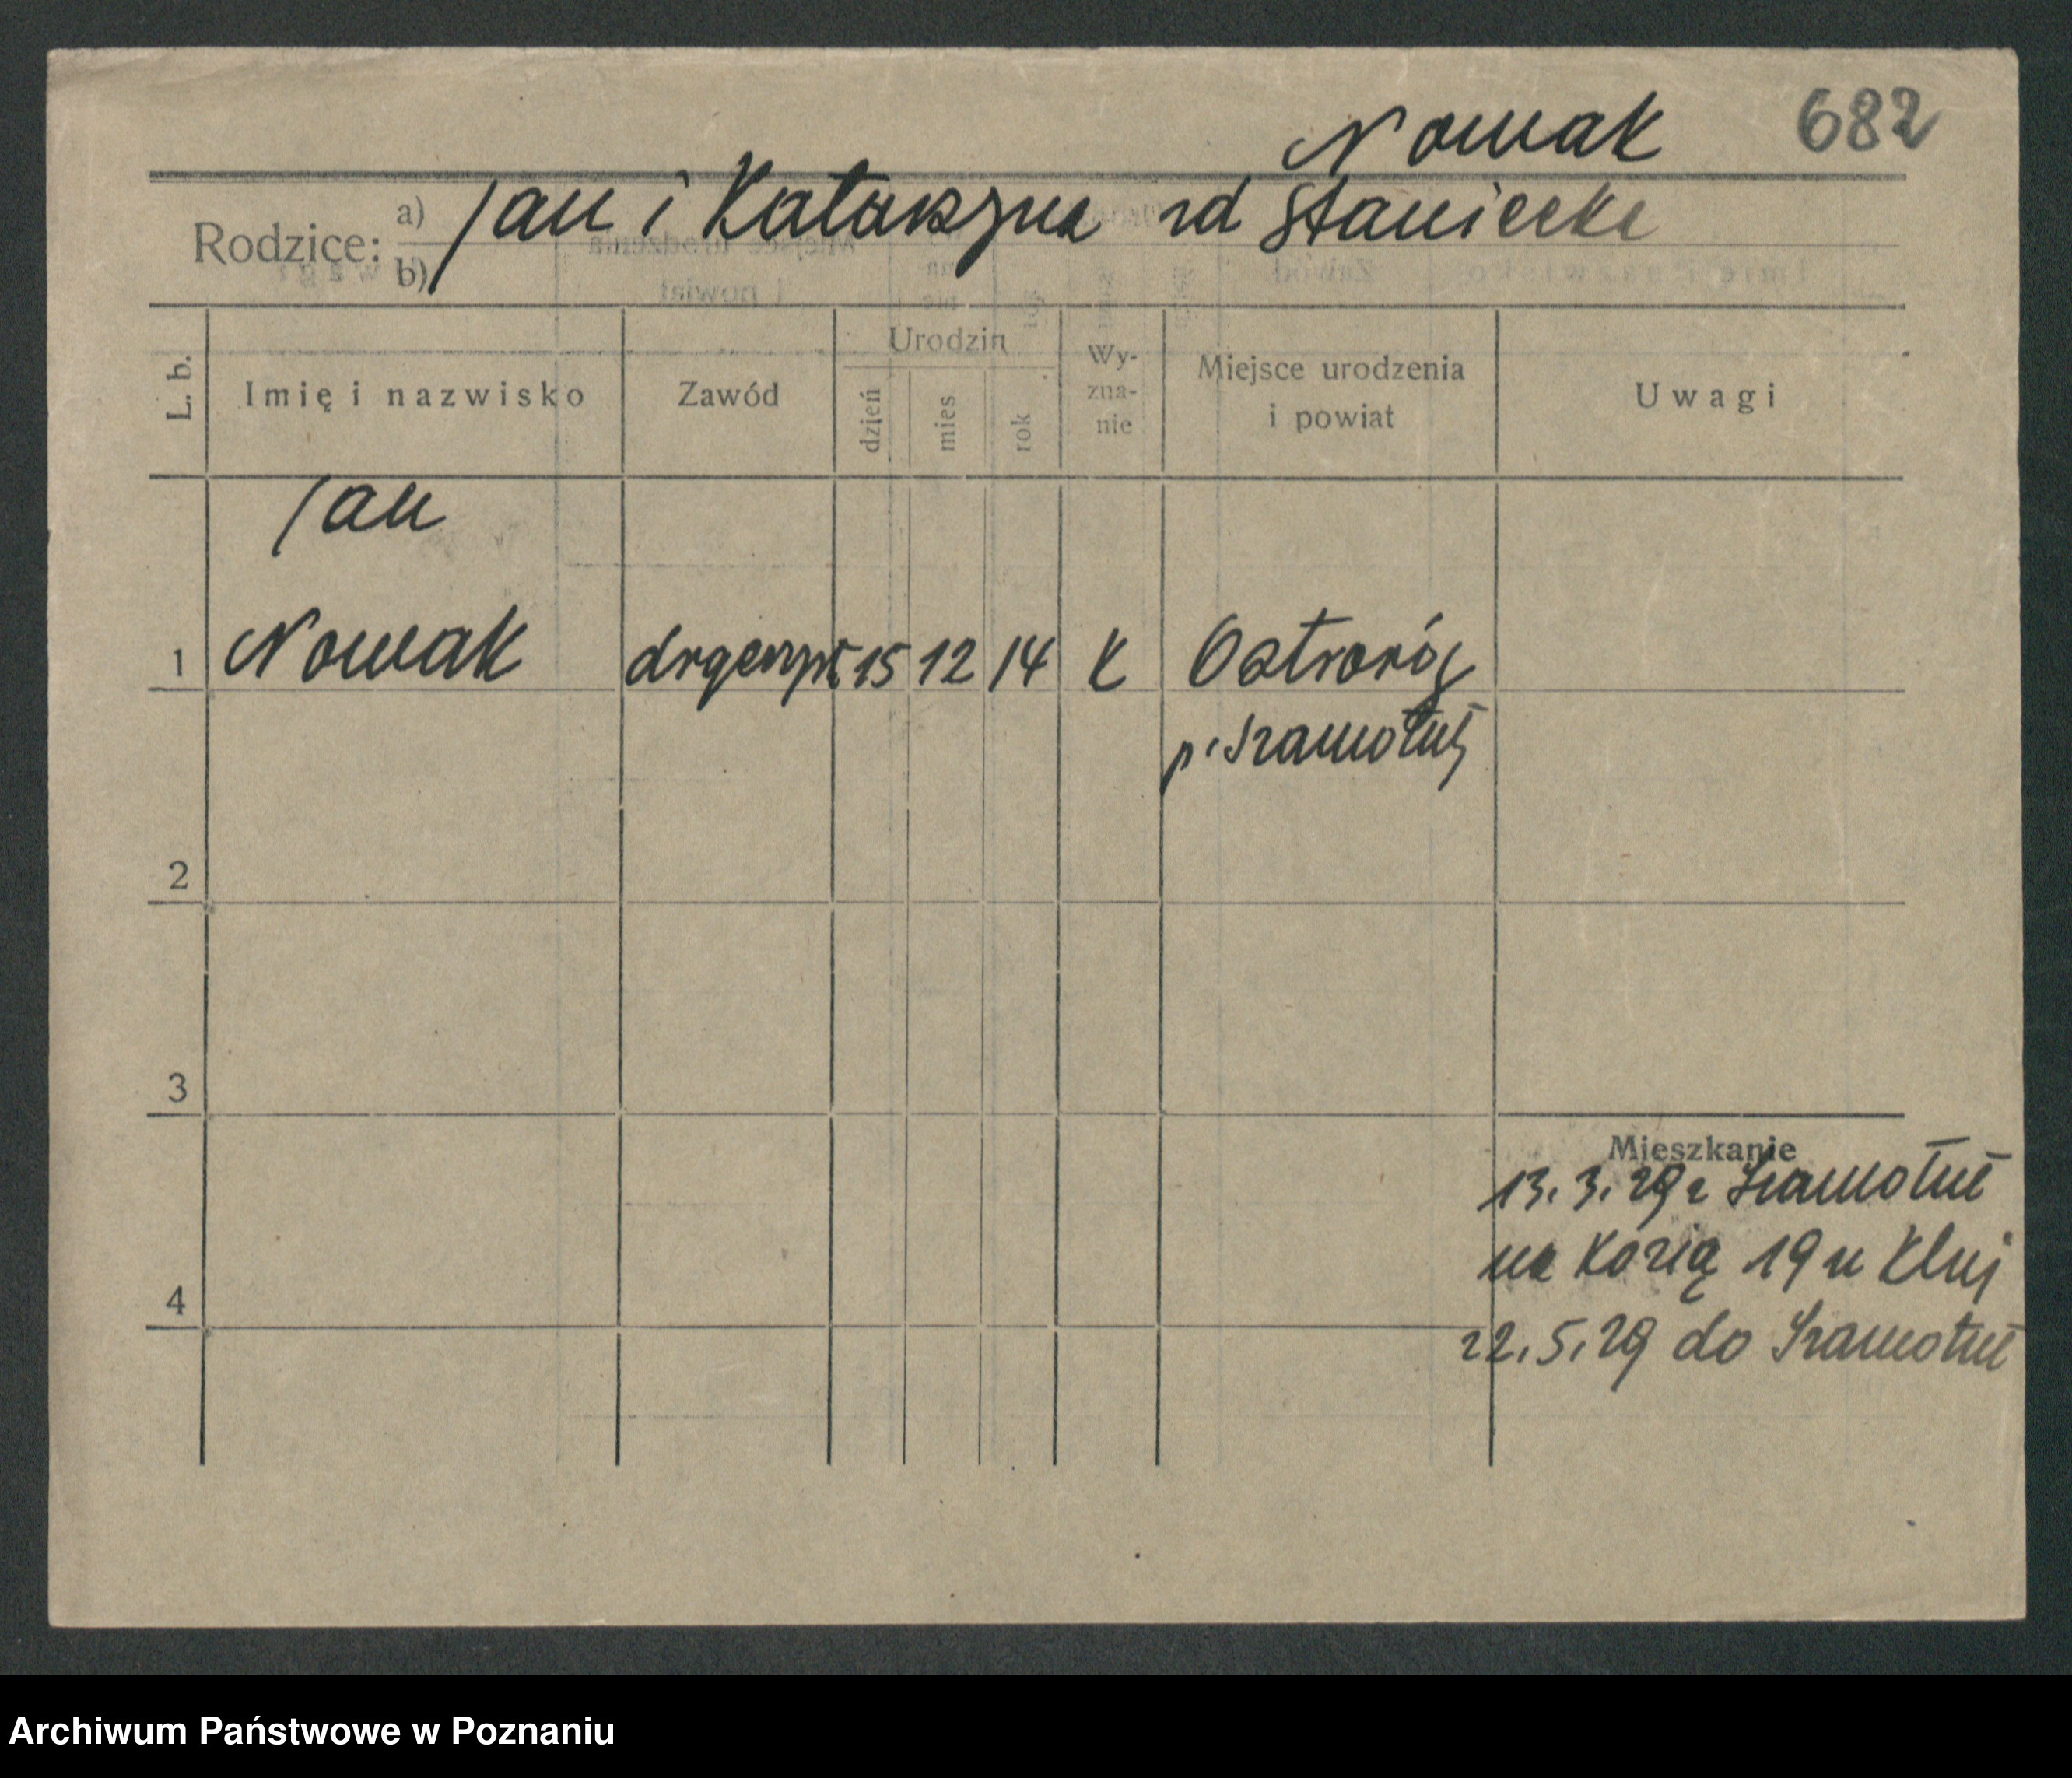 Nowak 682
Rodzice: a) b) Jan i Katarzyna zd Staniecka
L. b. Imię i nazwisko Zawód Urodzin dzień mies rok Wy-zna-nie Miejsce urodzenia i powiat Uwagi
Jan
1 Nowak 15 12 14 K Ostroróg
p. Szamotuły
2
3
Mieszkanie
13.3.29 z Szamotuł
na Kozią 19 u
4
22.5.29 do Szamotuł
Archiwum Państwowe w Poznaniu